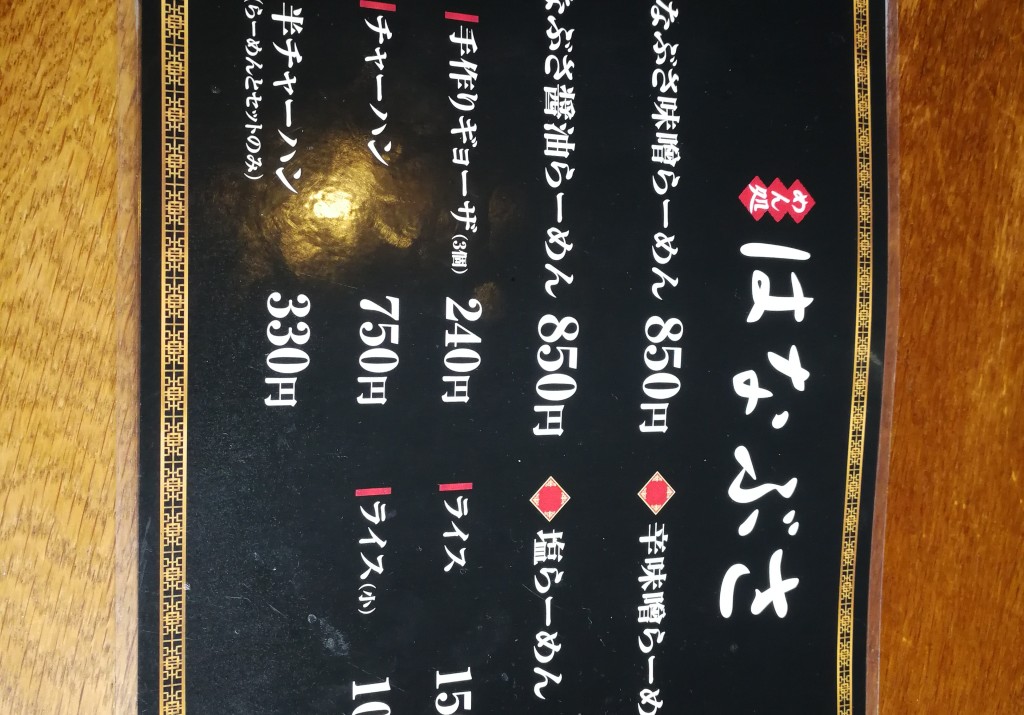 めん処
はなぶさ
なぶさ味噌らーめん 850円
辛味噌らーめ
なぶさ醤油らーめん 850円
塩らーめん
手作りギョーザ(3個) 240円
ライス 15
チャーハン 750円
ライス(小) 10
半チャーハン 330円
(らーめんとセットのみ)